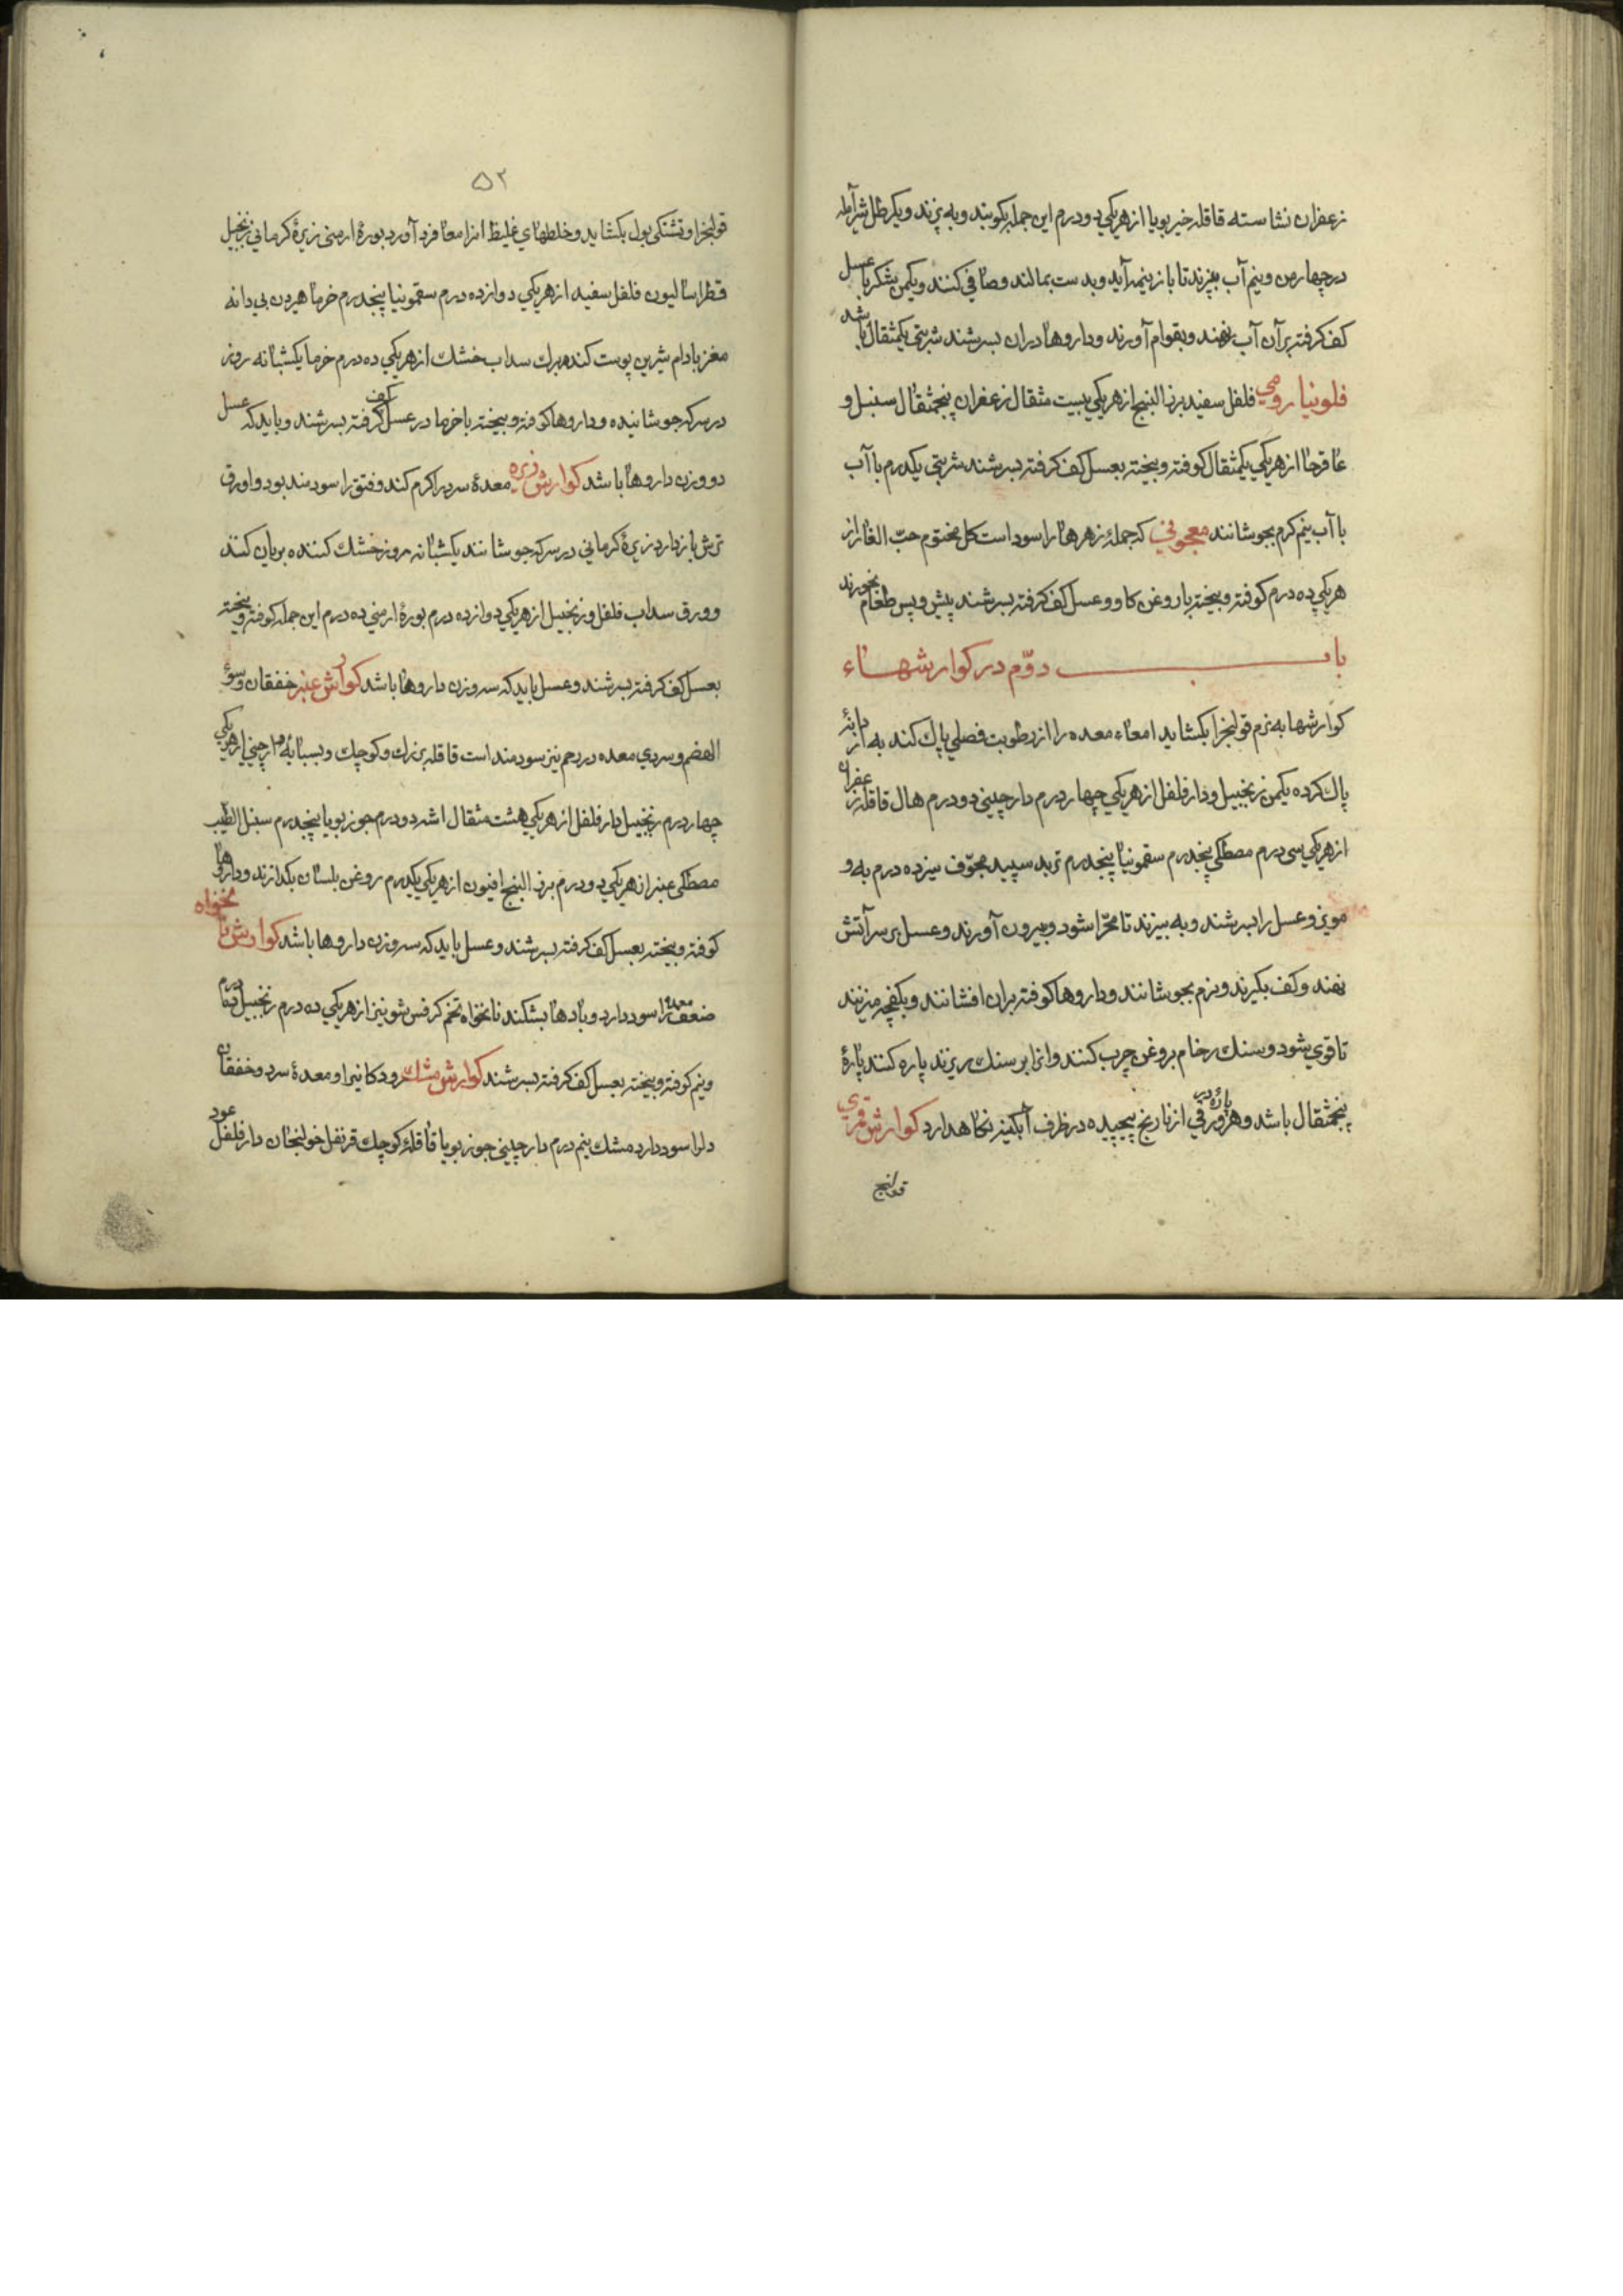 زعفران نشاسته قاقله خیربویا از هریکی دو درم این جمله بکوبند و به پزند و یکرطل شیرآمله
در چهار من و نیم آب بپزند تا باز نیمه آید و بدست بمالند و صافی کنند و یکمن شکر با عسل
کف کرفته بر آن آب نهند و بقوام آورند و داروها در ان بسرشند شربتی یکمثقال باشد
فلونیا رومی فلفل سفید بزر البنج از هریکی بیست مثقال زعفران پنجمثقال سنبل و
عاقرحا از هریکی یکمثقال کوفته و بیخته بعسل کف کرفته بسرشند شربتی یکدرم با آب
با آب نیم کرم بجوشانند معجونی که جملهٔ زهرها را سود است کل مختوم حبّ الغار از
هریکی ده درم کوفته و بیخته با روغن کاو و عسل کف کرفته بسرشند پیش و پس طعام بخورند
باب دوّم در کوارشهاء
کوارشها به نرم قولنجرا بکشاید امعاء معده را از رطوبت فصلی پاك کند به از دانهٔ
پاك کرده یکمن زنجبیل و دارفلفل از هریکی چهار درم دارچینی دو درم هال قاقله زعفران
از هریکی سی درم مصطکی پنجدرم سقمونیا پنجدرم تربد سپید مجوّف سیزده درم به و
مویز و عسل را بسرشند و به بیزند تا محرّا شود و بیرون آورند و عسل بر سر آتش
نهند و کف بکیرند و نرم بجوشانند و داروها کوفته بران افشانند و بکفچه میزنند
تا قوی شود و سنك رخام بروغن چرب کنند و انرا بر سنك ریزند پاره کنند پارهٔ
پنجمثقال باشد و هر پارهٔ در ورقی از نارنج پیچیده در ظرف آبکینه نکاهدارد کوارش قمری
قولنج
۵۲
قولنجرا و تشنکی بول بکشاید و خلطهای غلیظ انرا معا فرد آورد بورهٔ ارمنی زیرهٔ کرمانی زنجبیل
قطراسالیون فلفل سفید از هریکی دوازده درم سقمونیا پنجدرم خرما هیرون بی دانه
مغز بادام شیرین پوست کنده برك سداب خشك از هریکی ده درم خرما یکشبانه روز
در سرکه جوشانیده و داروها کوفته و بیخته با خرما در عسل کف کرفته بسرشند و باید که عسل
دو وزن داروها باشد کوارش زیره معدهٔ سرد را کرم کند و فتق را سودمند بود و اورق
ترش باز دارد زیرهٔ کرمانی در سرکه جوشانند یکشبانه روز خشك کننده بریان کنند
و ورق سداب فلفل و زنجبیل از هریکی دوازده درم بورهٔ ارمنی ده درم این جمله کوفته و بیخته
بعسل کف کرفته بسرشند و عسل باید که سه وزن داروها باشد کوارش عنبر خفقان و سؤ
الهضم و سردی معده درد رحم نیز سودمند است قاقله بزرك و کوچك و بسبایه دارچینی از هریکی
چهار درم زنجبیل دارفلفل از هریکی هشت مثقال اشه دو درم جوزبویا پنجدرم سنبل الطیب
مصطکی عنبر از هریکی دو درم بزر البنج افیون از هریکی یکدرم روغن بلسان بکدازند و داروها
کوفته و بیخته بعسل کف کرفته بسرشند و عسل باید که سه وزن داروها باشد کوارش نانخواه
ضعف معده را سود دارد و بادها بشکند نانخواه تخم کرفس شونیز از هریکی ده درم زنجبیل دو درم
و نیم کوفته و بیخته بعسل کف کرفته بسرشند کوارش مشك رودکانیرا و معدهٔ سرد و خفقان
دلرا سود دارد مشك نیم درم دارچینی جوزبویا قاقلهٔ کوچك قرنفل خولنجان دارفلفل عود